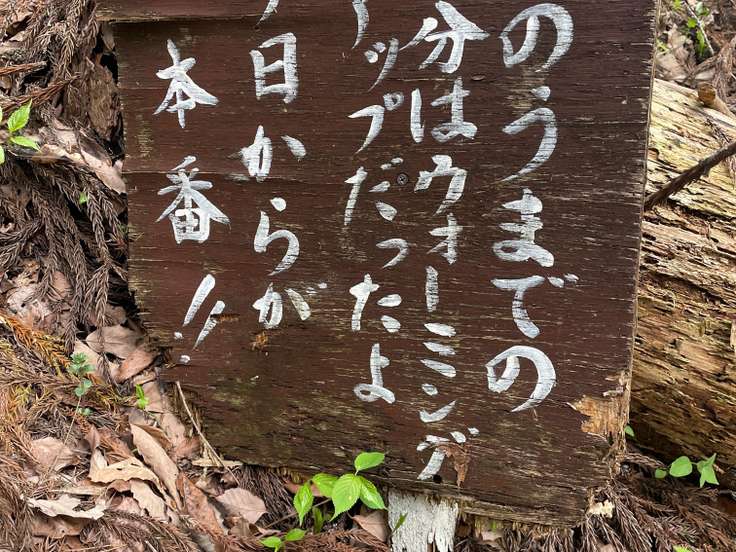 のうまでの
分はウォーミング
ップだったよ
日からが
本番!!